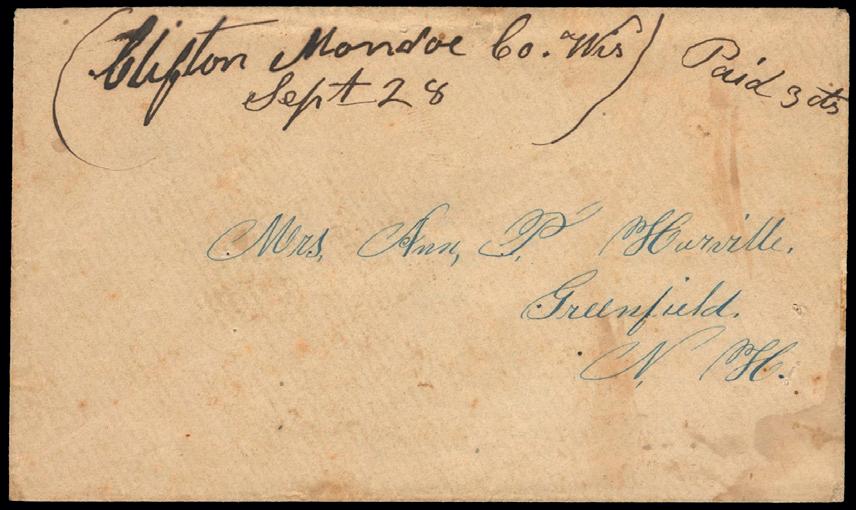 (Clifton Monroe Co. Wis)
Sept 28
Paid 3 cts
Mrs, Ann, P. Harville.
Greenfield.
N. H.